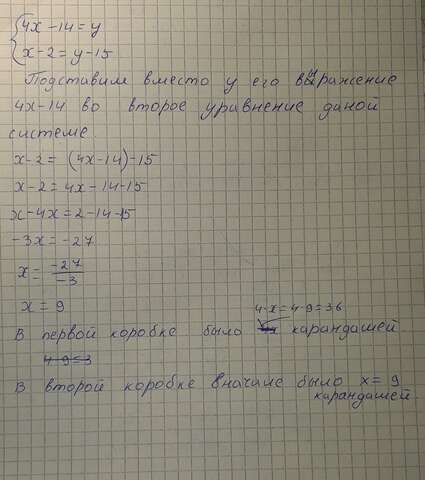 4x-14=y
x-2=y-15
Подставим вместо y его выражение
4x-14 во второе уравнение даной
системе
x-2=(4x-14)-15
x-2=4x-14-15
x-4x=2-14-15
-3x=-27
x=-27/-3
x=9
4·x=4·9=36
В первой коробке было карандашей
4·9=3
В второй коробке вначале было x=9
карандашей